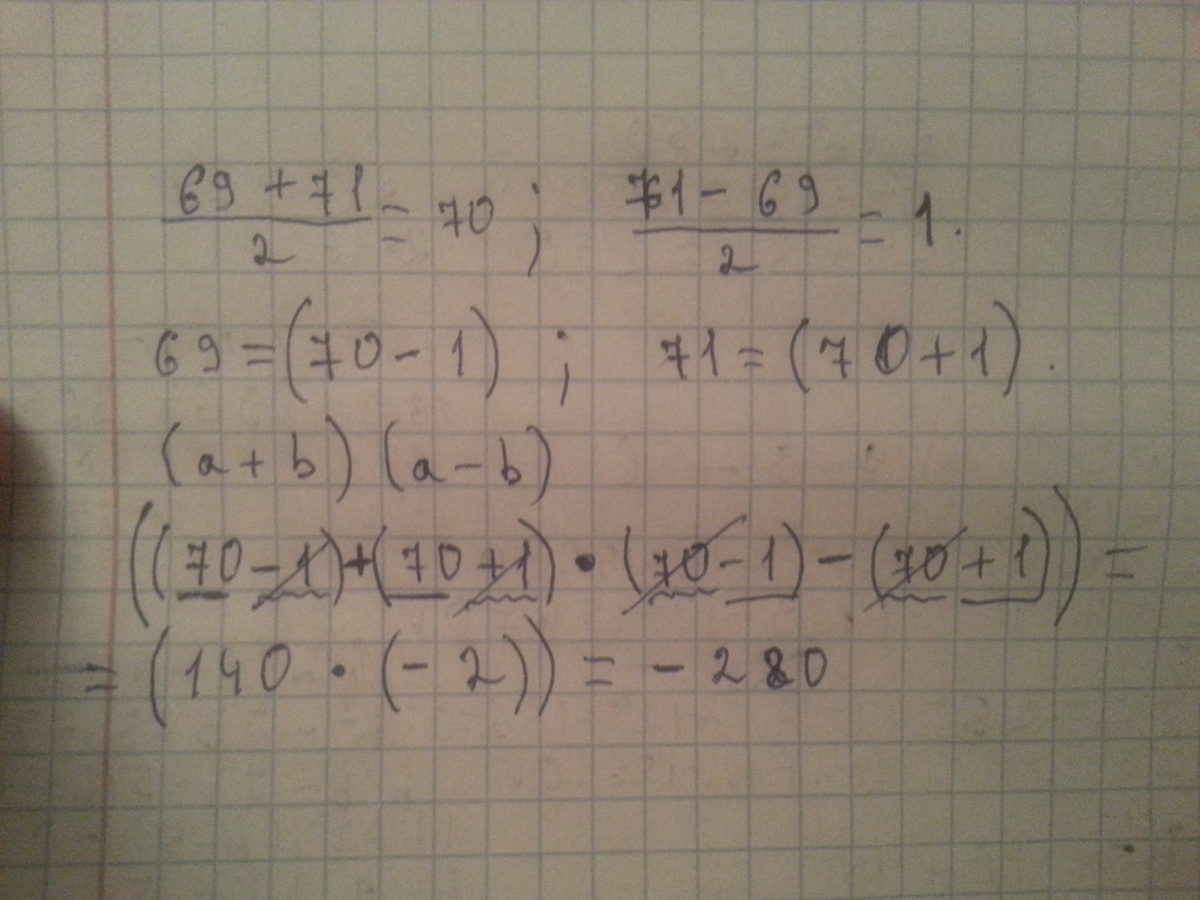 69 + 71 / 2 = 70 ; 71 - 69 / 2 = 1.
69 = (70 - 1) ; 71 = (70 + 1).
(a + b) (a - b)
((70 - 1) + (70 + 1) • (70 - 1) - (70 + 1)) =
= (140 • (- 2)) = - 280